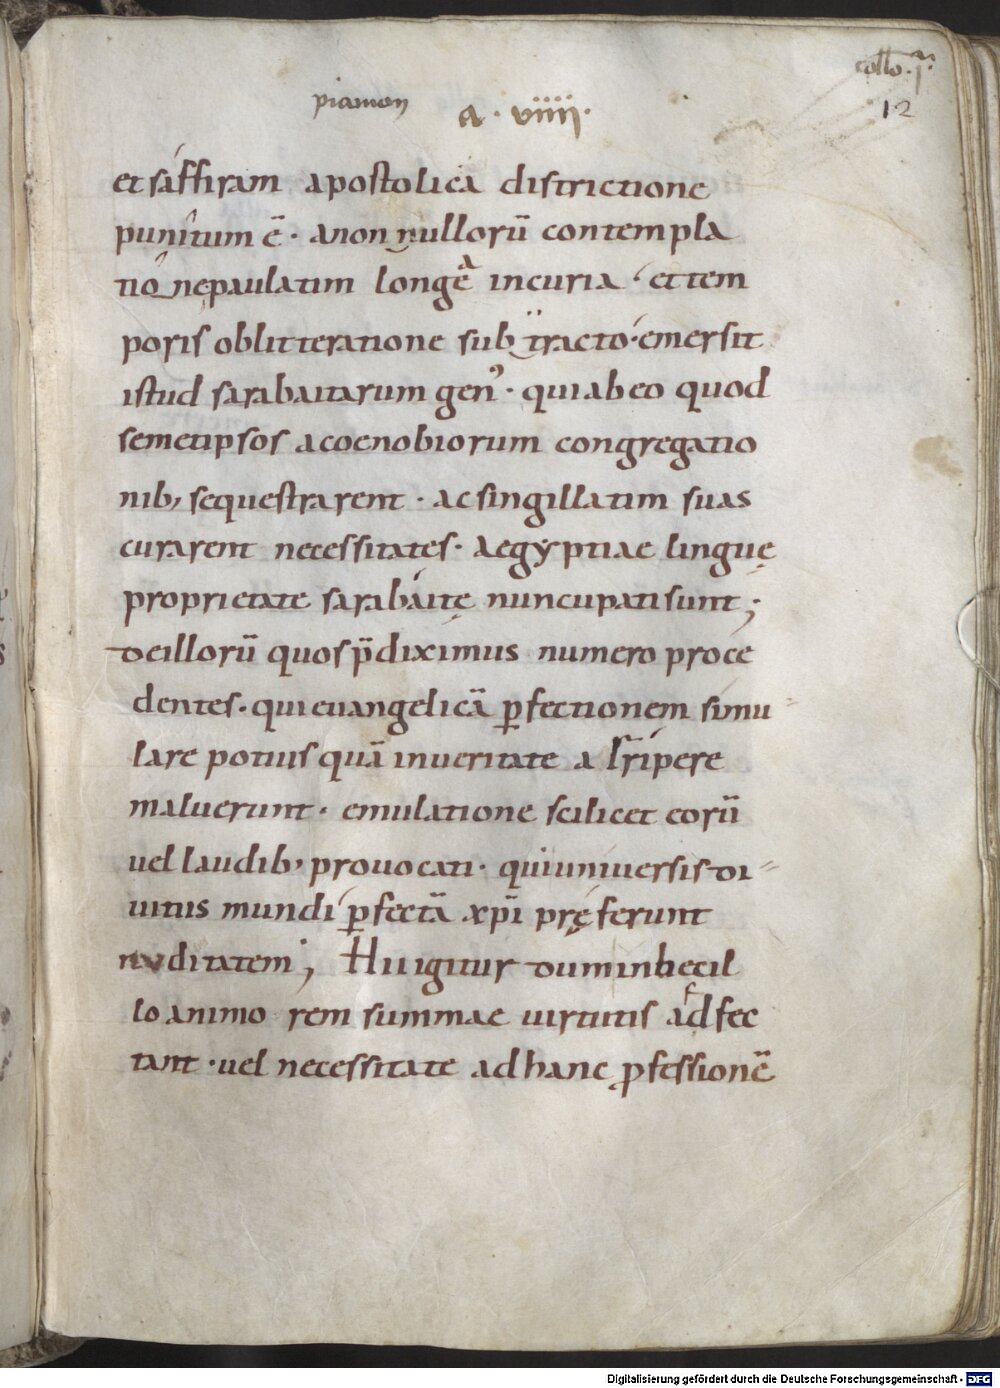 collo. i.
12
piamon
a · viiii ·
et saffiram apostolica districtione
punitum ē · anonnullorū contempla
tio nepaulatim longę incuria · ettem
poris oblitteratione subtracto · emersit
istud sarabaitarum gen᾽ · quiabeo quod
semetipsos acoenobiorum congregatio
nib; sequestrarent · acsingillatim suas
curarent necessitates · aegyptiae linguę
proprietate sarabaitę nuncupatisunt ;
deillorū quos p̄diximus numero proce
dentes · quieuangelicā ꝑfectionem simu
lare potius quā inueritate arripere
maluerunt · emulatione scilicet eorū
uel laudib; prouocati · quiuniuersis di
uitiis mundi ꝑfectā xp̄i pręferunt
nuditatem ; Hiigitur duminbecil
lo animo rem summae uirtutis adfec
tant · uel necessitate adhanc ꝓfessionē
Digitalisierung gefördert durch die Deutsche Forschungsgemeinschaft - DFG